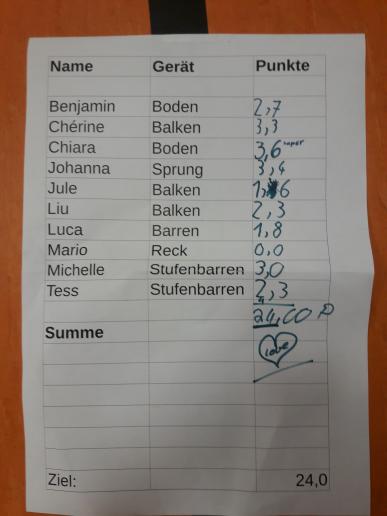 Name Gerät Punkte
Benjamin Boden 2,7
Chérine Balken 3,3
Chiara Boden 3,6 super
Johanna Sprung 3,4
Jule Balken 1,6
Liu Balken 2,3
Luca Barren 1,8
Mario Reck 0,0
Michelle Stufenbarren 3,0
Tess Stufenbarren 2,3
24,00 P
Summe
Love
Ziel: 24,0